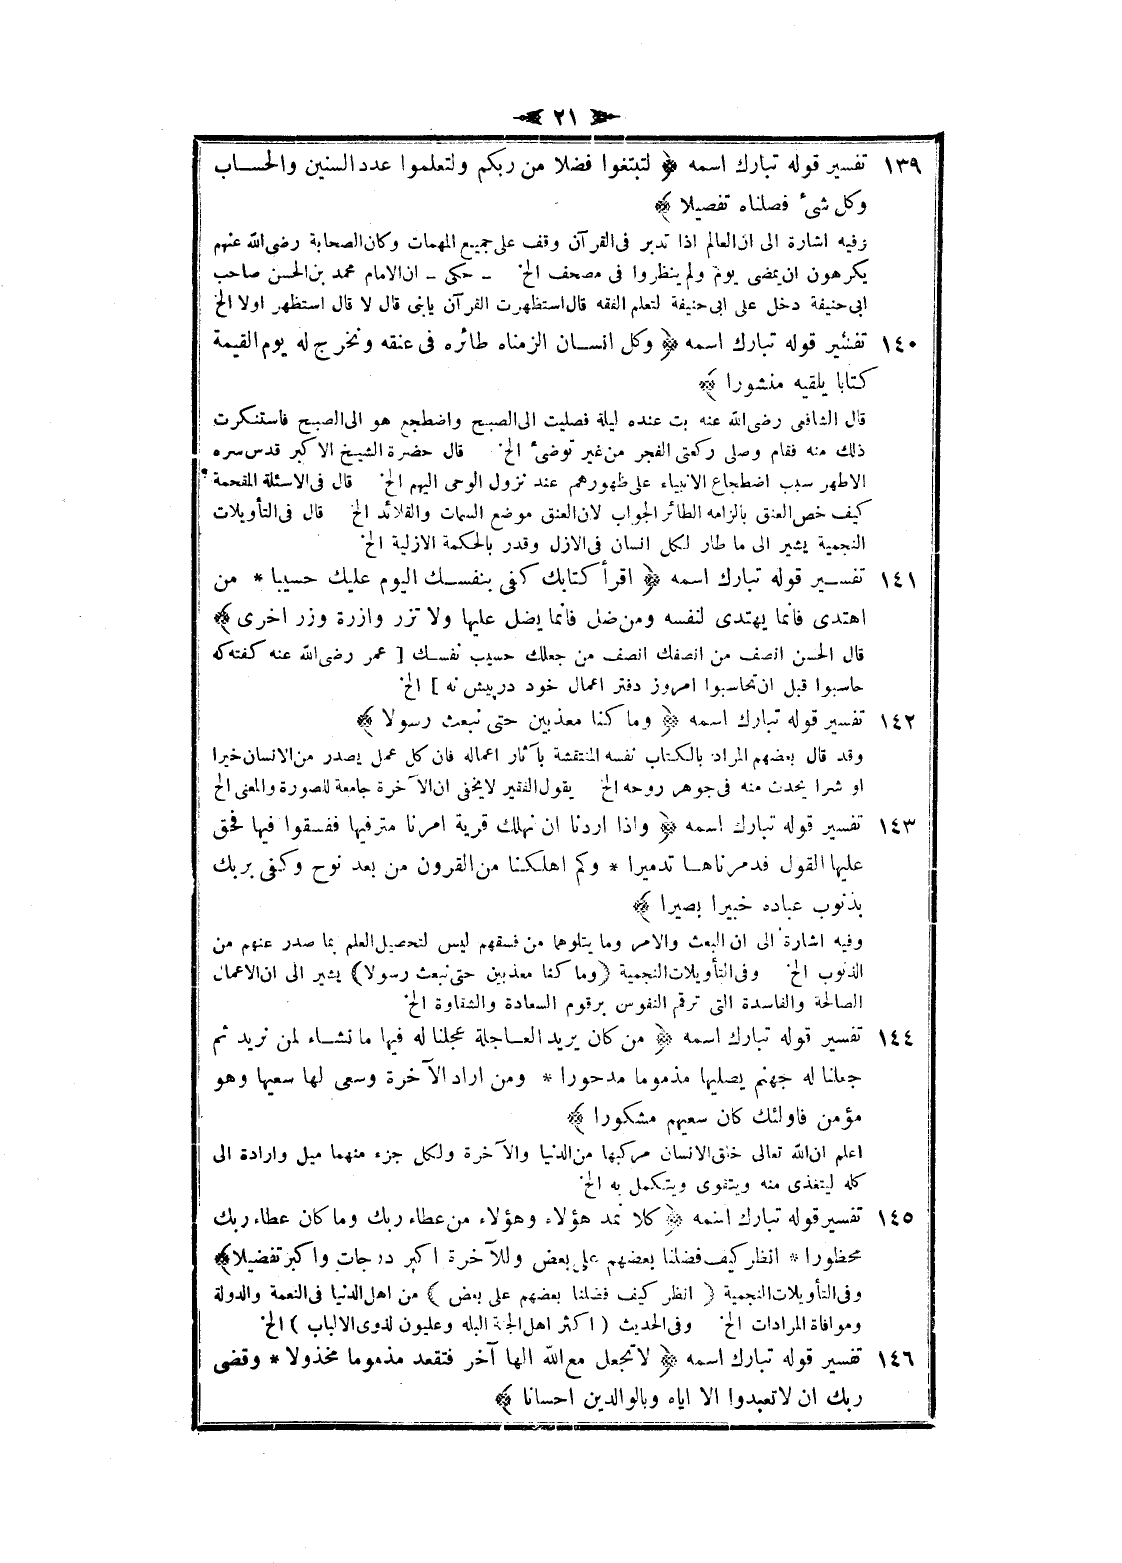 ٢١
١٣٩ تفسير قوله تبارك اسمه ﴿ لتبتغوا فضلا من ربكم ولتعلموا عدد السنين والحساب
وكل شئ فصلناه تفصيلا ﴾
وفيه اشارة الى ان العالم اذا تدبر فى القرآن وقف على جميع المهمات وكان الصحابة رضى الله عنهم
يكرهون ان يمضى يوم ولم ينظروا فى مصحف الخ ــ حكى ــ ان الامام محمد بن الحسن صاحب
ابى حنيفة دخل على ابى حنيفة لتعلم الفقه قال استظهرت القرآن يابنى قال لا قال استظهر اولا الخ
١٤٠ تفسير قوله تبارك اسمه ﴿ وكل انسان الزمناه طائره فى عنقه ونخرج له يوم القيمة
كتابا يلقيه منشورا ﴾
قال الشافعى رضى الله عنه بت عنده ليلة فصليت الى الصبح واضطجع هو الى الصبح فاستنكرت
ذلك منه فقام وصلى ركعتى الفجر من غير توضئ الخ قال حضرة الشيخ الاكبر قدس سره
الاطهر سبب اضطجاع الانبياء على ظهورهم عند نزول الوحى اليهم الخ قال فى الاسئلة المفحمة
كيف خص العنق بالزامه الطائر الجواب لان العنق موضع السمات والقلائد الخ قال فى التأويلات
النجمية يشير الى ما طار لكل انسان فى الازل وقدر بالحكمة الازلية الخ
١٤١ تفسير قوله تبارك اسمه ﴿ اقرأ كتابك كفى بنفسك اليوم عليك حسيبا * من
اهتدى فانما يهتدى لنفسه ومن ضل فانما يضل عليها ولا تزر وازرة وزر اخرى ﴾
قال الحسن انصف من انصفك انصف من جعلك حسيب نفسك [ عمر رضى الله عنه كفته كه
حاسبوا قبل ان تحاسبوا امروز دفتر اعمال خود درپيش نه ] الخ
١٤٢ تفسير قوله تبارك اسمه ﴿ وما كنا معذبين حتى نبعث رسولا ﴾
وقد قال بعضهم المراد بالكتاب نفسه المنتقشة بآثار اعماله فان كل عمل يصدر من الانسان خيرا
او شرا يحدث منه فى جوهر روحه الخ يقول الفقير لايخفى ان الآخرة جامعة للصورة والمعنى الخ
١٤٣ تفسير قوله تبارك اسمه ﴿ واذا اردنا ان نهلك قرية امرنا مترفيها ففسقوا فيها فحق
عليها القول فدمرناها تدميرا * وكم اهلكنا من القرون من بعد نوح وكفى بربك
بذنوب عباده خبيرا بصيرا ﴾
وفيه اشارة الى ان البعث والامر وما يتلوها من فسقهم ليس لتحصيل العلم بما صدر عنهم من
الذنوب الخ وفى التأويلات النجمية (وما كنا معذبين حتى نبعث رسولا) يشير الى ان الاعمال
الصالحة والفاسدة التى ترقم النفوس برقوم السعادة والشقاوة الخ
١٤٤ تفسير قوله تبارك اسمه ﴿ من كان يريد العاجلة عجلنا له فيها ما نشاء لمن نريد ثم
جعلنا له جهنم يصليها مذموما مدحورا * ومن اراد الآخرة وسعى لها سعيها وهو
مؤمن فاولئك كان سعيهم مشكورا ﴾
اعلم ان الله تعالى خلق الانسان مركبها من الدنيا والآخرة ولكل جزء منهما ميل وارادة الى
كله ليتغذى منه ويتقوى ويتكمل به الخ
١٤٥ تفسير قوله تبارك اسمه ﴿ كلا نمد هؤلاء وهؤلاء من عطاء ربك وما كان عطاء ربك
محظورا * انظر كيف فضلنا بعضهم على بعض وللآخرة اكبر درجات واكبر تفضيلا ﴾
وفى التأويلات النجمية ( انظر كيف فضلنا بعضهم على بعض ) من اهل الدنيا فى النعمة والدولة
وموافاة المرادات الخ وفى الحديث ( اكثر اهل الجنة البله وعليون لذوى الالباب ) الخ
١٤٦ تفسير قوله تبارك اسمه ﴿ لاتجعل مع الله الها آخر فتقعد مذموما مخذولا * وقضى
ربك ان لاتعبدوا الا اياه وبالوالدين احسانا ﴾